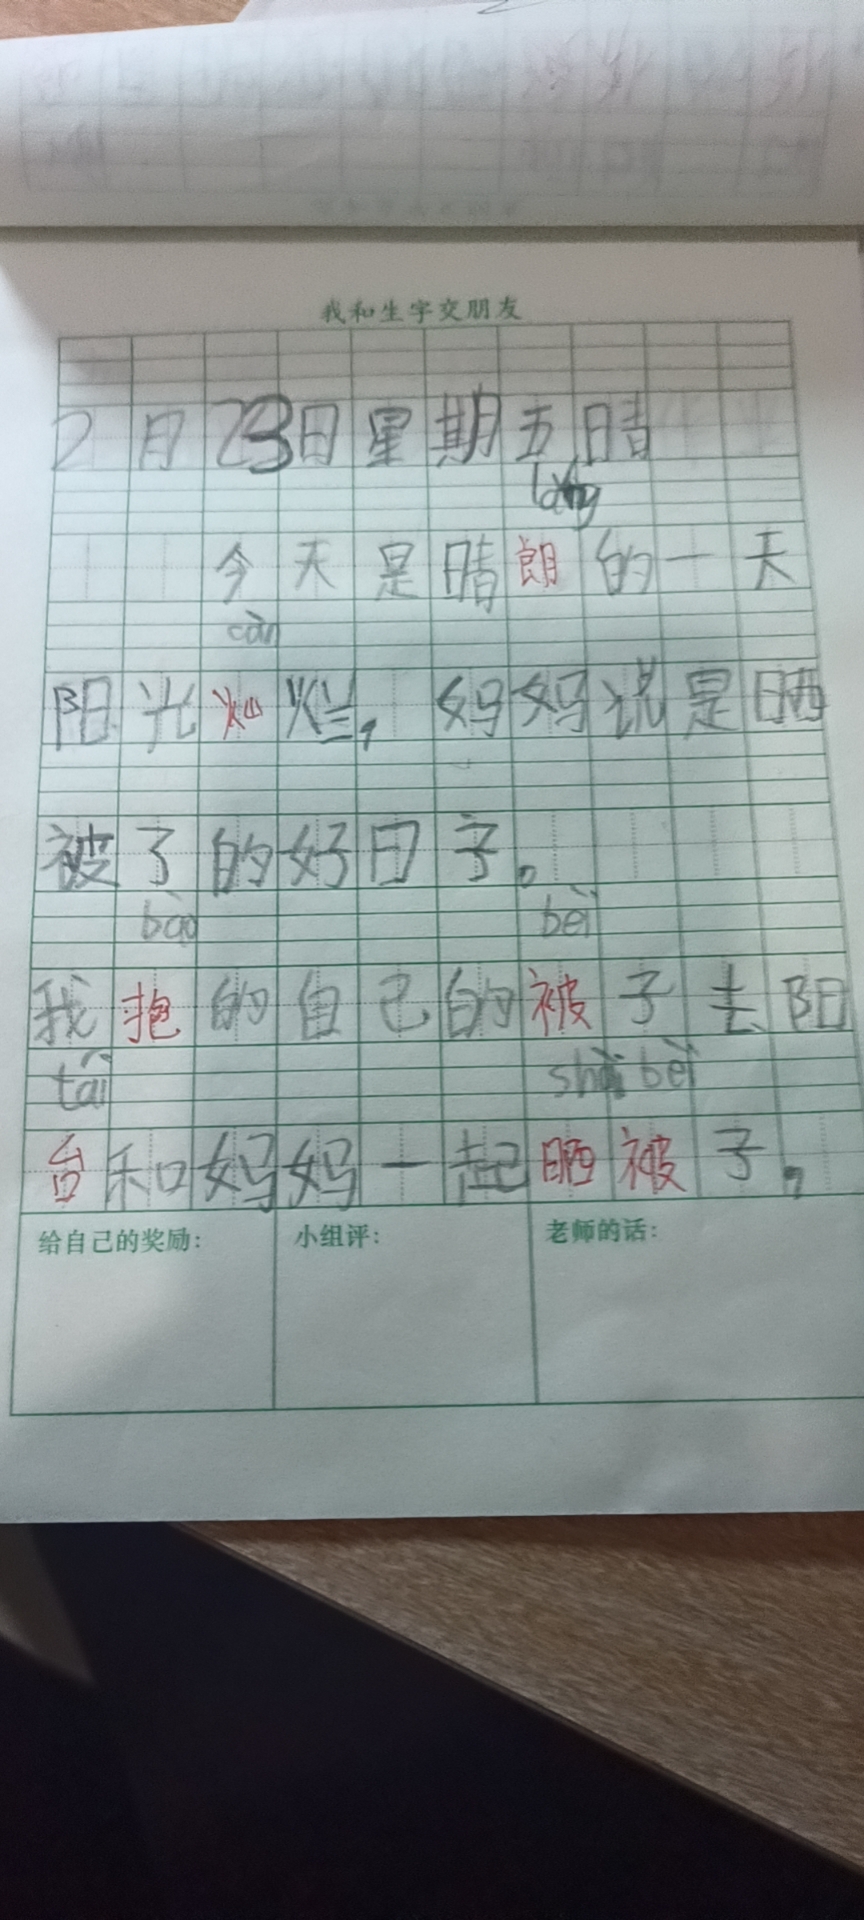 我和生字交朋友
2月23日星期五晴
lǎng
今天是晴朗的一天
càn
阳光灿烂，妈妈说是晒
被了的好日子。
bào bèi
我抱的自己的被子去阳
tái shài bèi
台和妈妈一起晒被子，
给自己的奖励： 小组评： 老师的话：